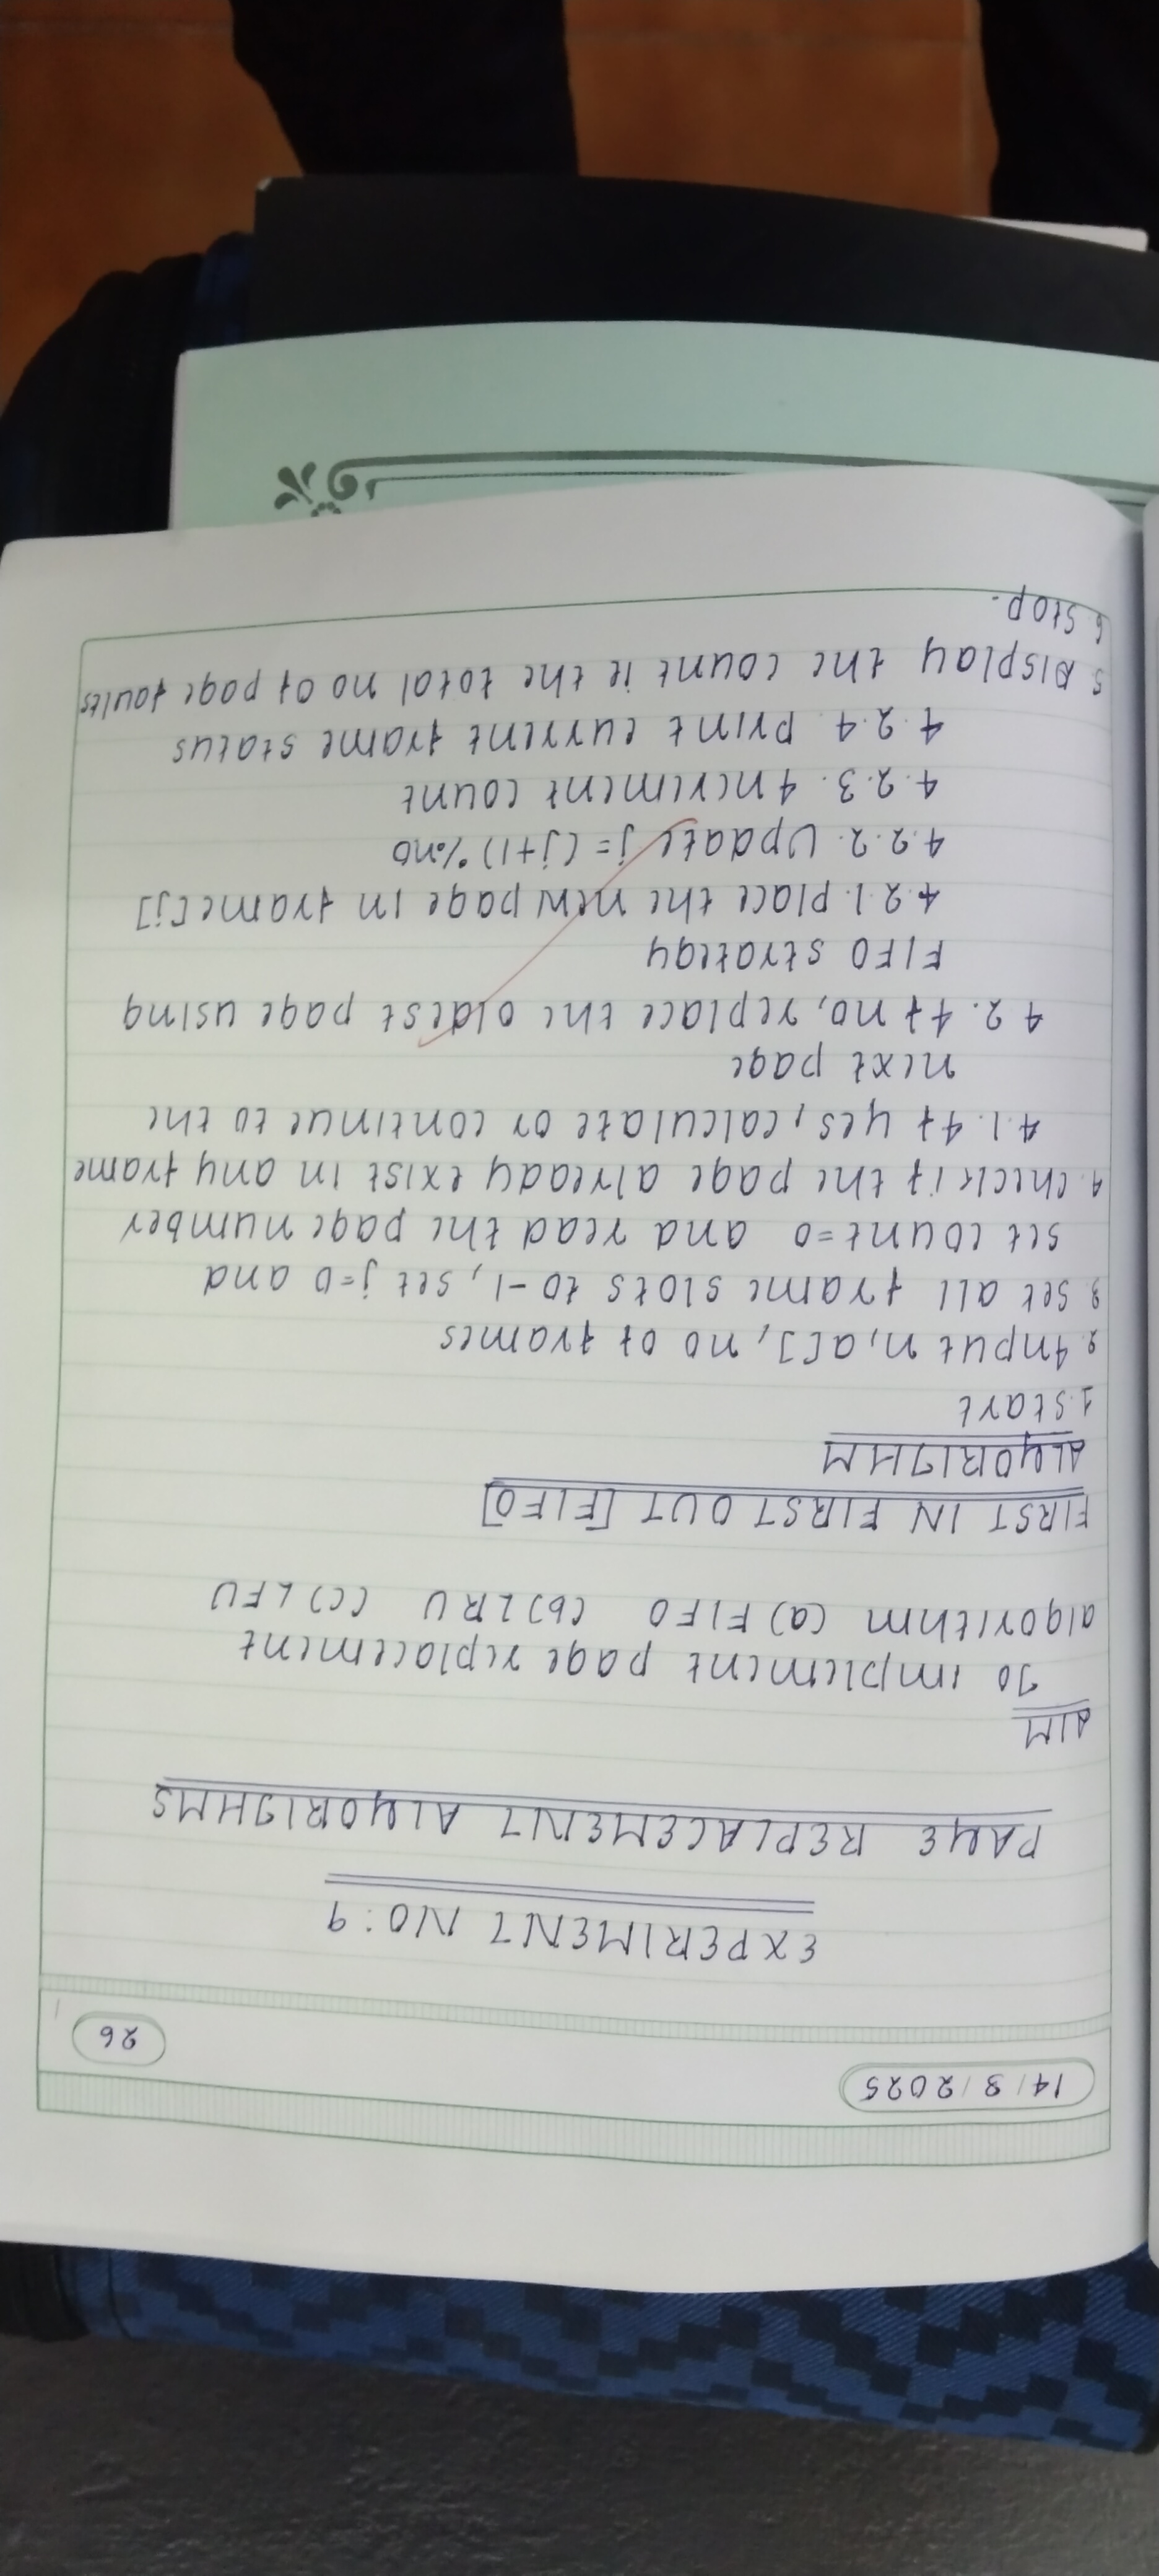 14/3/2025
26
EXPERIMENT NO: 9
PAGE REPLACEMENT ALGORITHMS
AIM
To implement page replacement
algorithm (a) FIFO (b) LRU (c) LFU
FIRST IN FIRST OUT [FIFO]
ALGORITHM
1. Start
2. Input n, a[], no of frames
3. Set all frame slots to -1, set j=0 and
set count=0 and read the page number
4. Check if the page already exist in any frame
4.1. If yes, calculate or continue to the
next page
4 2. If no, replace the oldest page using
FIFO strategy
4.2 1. Place the new page in frame[j]
4.2.2. Update j= (j+1) %no
4.2.3. Increment count
4.2.4 Print current frame status
5. Display the count ie the total no of page faults
6. Stop.